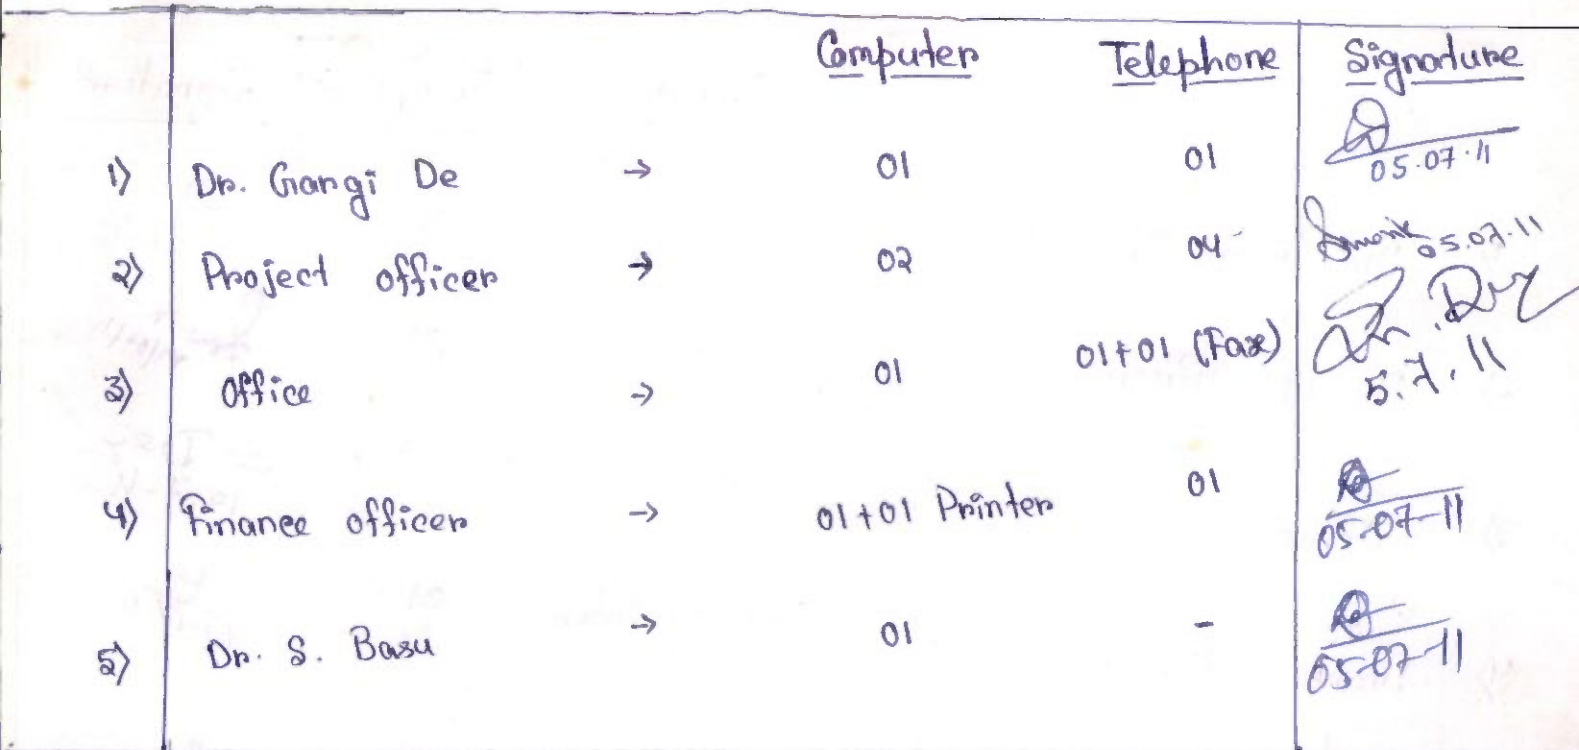 Computer Telephone Signature
1) Dr. Gargi De → 01 01 05.07.11
2) Project officer → 02 04 05.07.11
3) Office → 01 01+01 (Fax) 5.7.11
4) Finance officer → 01+01 Printer 01 05-07-11
5) Dr. S. Basu → 01 - 05-07-11